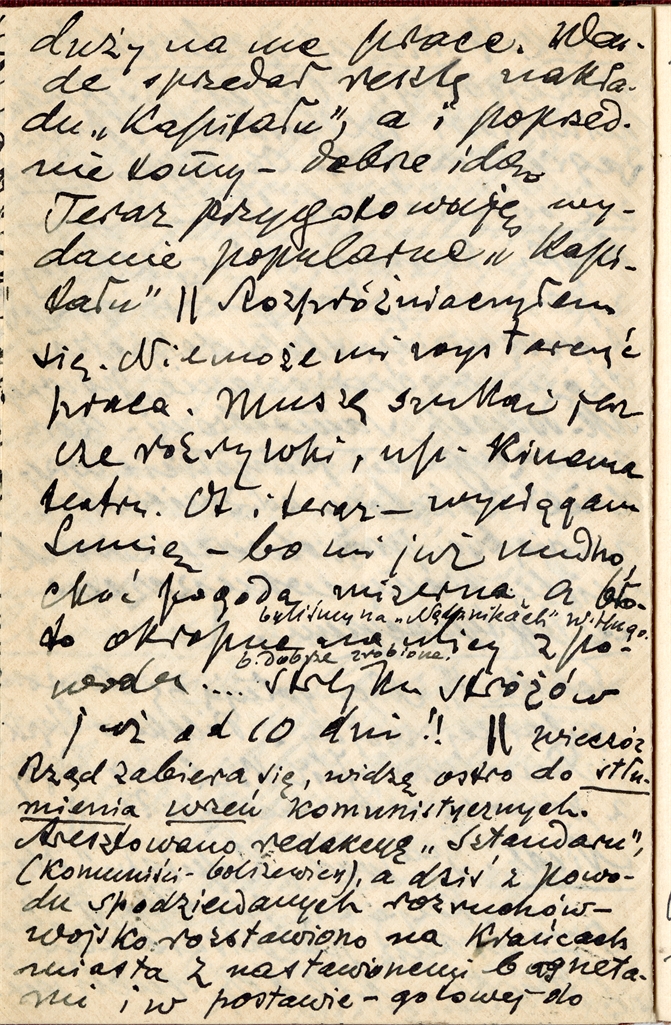 duży na me prace. Wan-
de sprzedał resztę nakła-
du „Kapitału", a i poprzed-
nie tomy – dobrze idą.
Teraz przygotowuję wy-
danie popularne „Kapi-
tału" || Rozpróżniaczyłem
się. Nie może mi wystarczyć
praca. Muszę szukać jesz
cze rozrywki, np. Kinema
teatru. Ot i teraz – wyciągam
Lunię – bo mi już nudno,
choć pogoda mizerna, a bło-
byliśmy na „Nędznikach" W. Hugo.
to okropne na ulicy z po-
b. dobrze zrobione.
wodu .... strejku stróżów
już od 10 dni!! || wieczór
Rząd zabiera się, widzę ostro do stłu-
mienia wrzeń komunistycznych.
Aresztowano redakcyę „Sztandaru",
(Komuniści-bolszewicy), a dziś z powo-
du spodziewanych rozruchów –
wojsko rozstawiono na krańcach
miasta z nastawionemi bagneta-
mi i w postawie – gotowej do